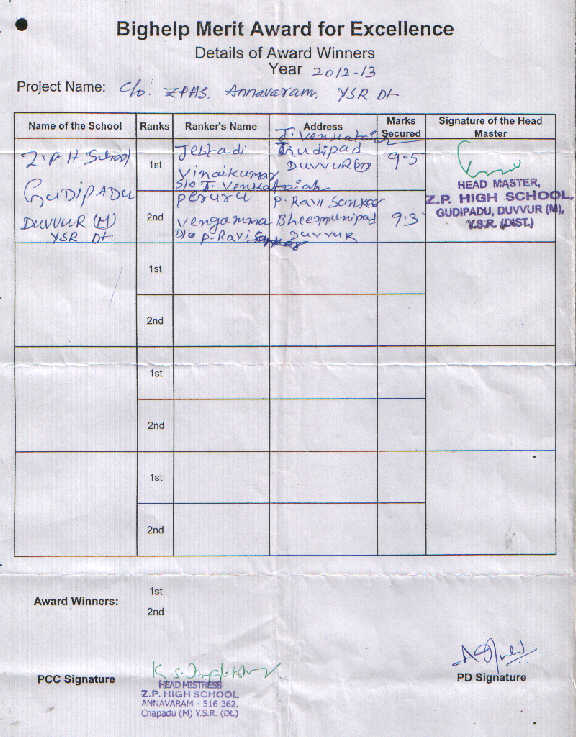 Bighelp Merit Award for Excellence
Details of Award Winners
Year 2012-13
Project Name: C/o. ZPHS. Annavaram. YSR Dt
Name of the School Ranks Ranker's Name Address Marks Secured Signature of the Head Master
Z.P.H School
GUDIPADU
DUVVUR (M)
YSR Dt
1st
Vinaikumar
S/o J. Venkataiah
Gudipad
Duvvur (M)
9.5
HEAD MASTER,
Z.P. HIGH SCHOOL,
GUDIPADU, DUVVUR (M),
Y.S.R. (DIST.)
2nd
Vengamma
D/o P. Ravi Sankar
P. Ravi Sankar
Bheemunipad
Duvvur
9.3
1st
2nd
1st
2nd
1st
2nd
Award Winners:
1st
2nd
PCC Signature
HEAD MISTRESS
Z.P. HIGH SCHOOL
ANNAVARAM - 516 362.
Chapadu (M) Y.S.R. (Dt.)
PD Signature